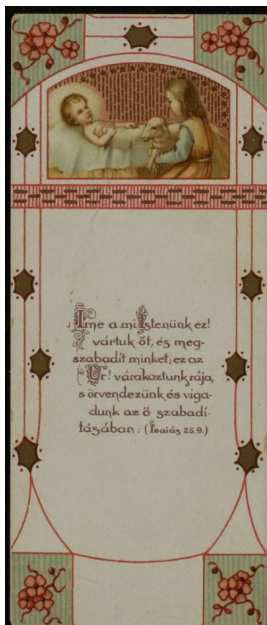 Ime a mi Istenünk ez!
vártuk őt, és meg-
szabadít minket; ez az
Úr! várakoztunk rája,
s örvendezünk és viga-
dunk az ő szabadí-
tásában. (Isaiás 25.9.)